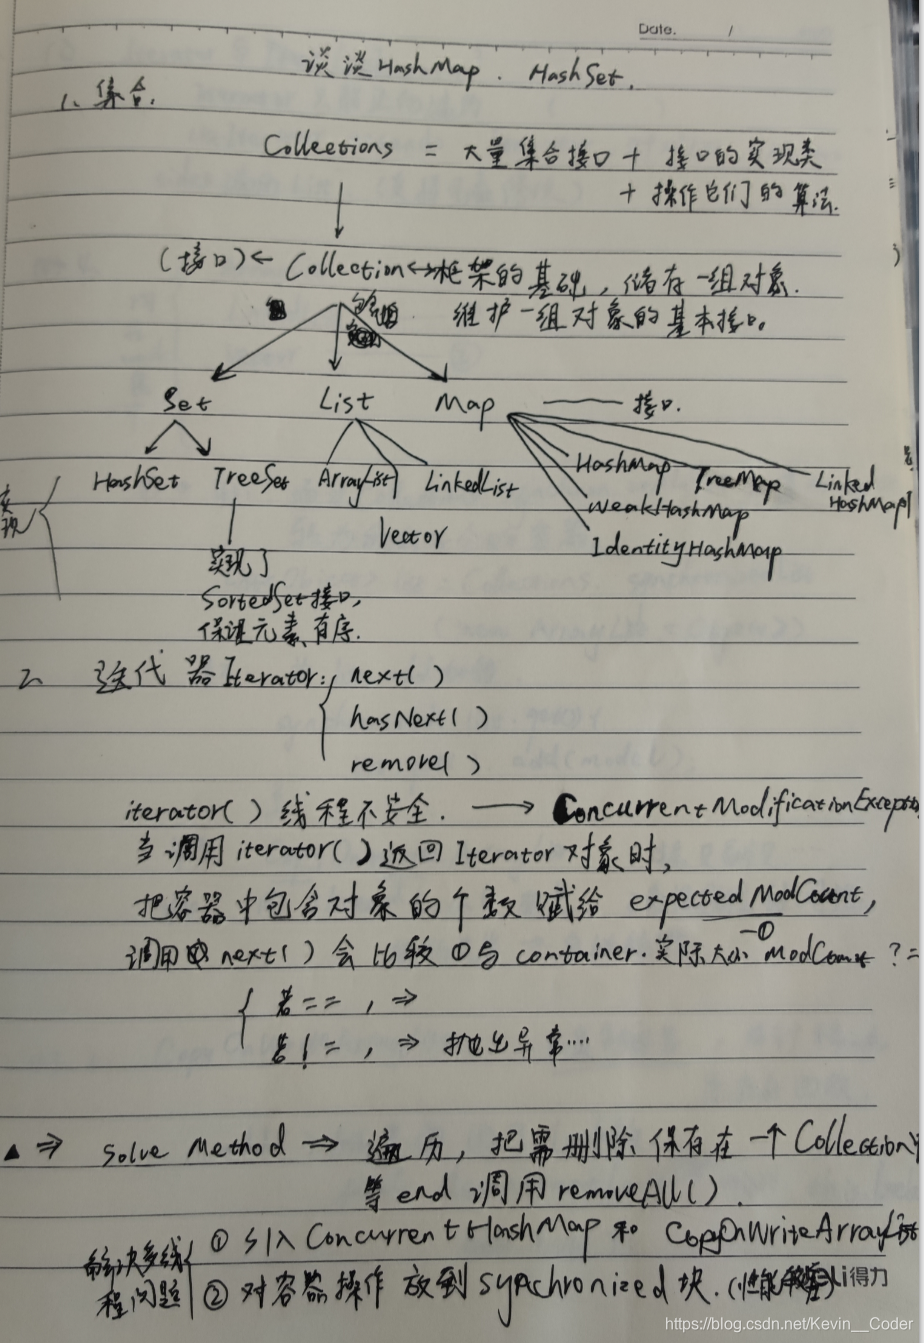 Date. /
谈谈HashMap. HashSet.
1、集合.
Collections = 大量集合接口 + 接口的实现类
+ 操作它们的算法.
(接口)← Collection↔框架的基础, 储存一组对象.
维护一组对象的基本接口。
Set List Map —— 接口.
实现 { HashSet TreeSet ArrayList LinkedList HashMap TreeMap Linked HashMap
Vector WeakHashMap
IdentityHashMap
实现了
SortedSet接口,
保证元素有序.
2、 迭代器Iterator: { next()
hasNext()
remove()
iterator() 线程不安全. → ConcurrentModificationExcept
当调用iterator()返回Iterator对象时,
把容器中包含对象的个数赋给 expectedModCount,
—①
调用 next() 会比较①与container.实际大小 ModCount ?=
{ 若 == , ⇒
若 != , ⇒ 抛出异常…
▲ ⇒ Solve Method ⇒ 遍历, 把需删除保存在一个Collection
等end调用removeAll().
解决多线程问题 { ① 引入 ConcurrentHashMap 和 CopyOnWriteArrayList
② 对容器操作放到synchronized块.(性能
li得力
https://blog.csdn.net/Kevin__Coder